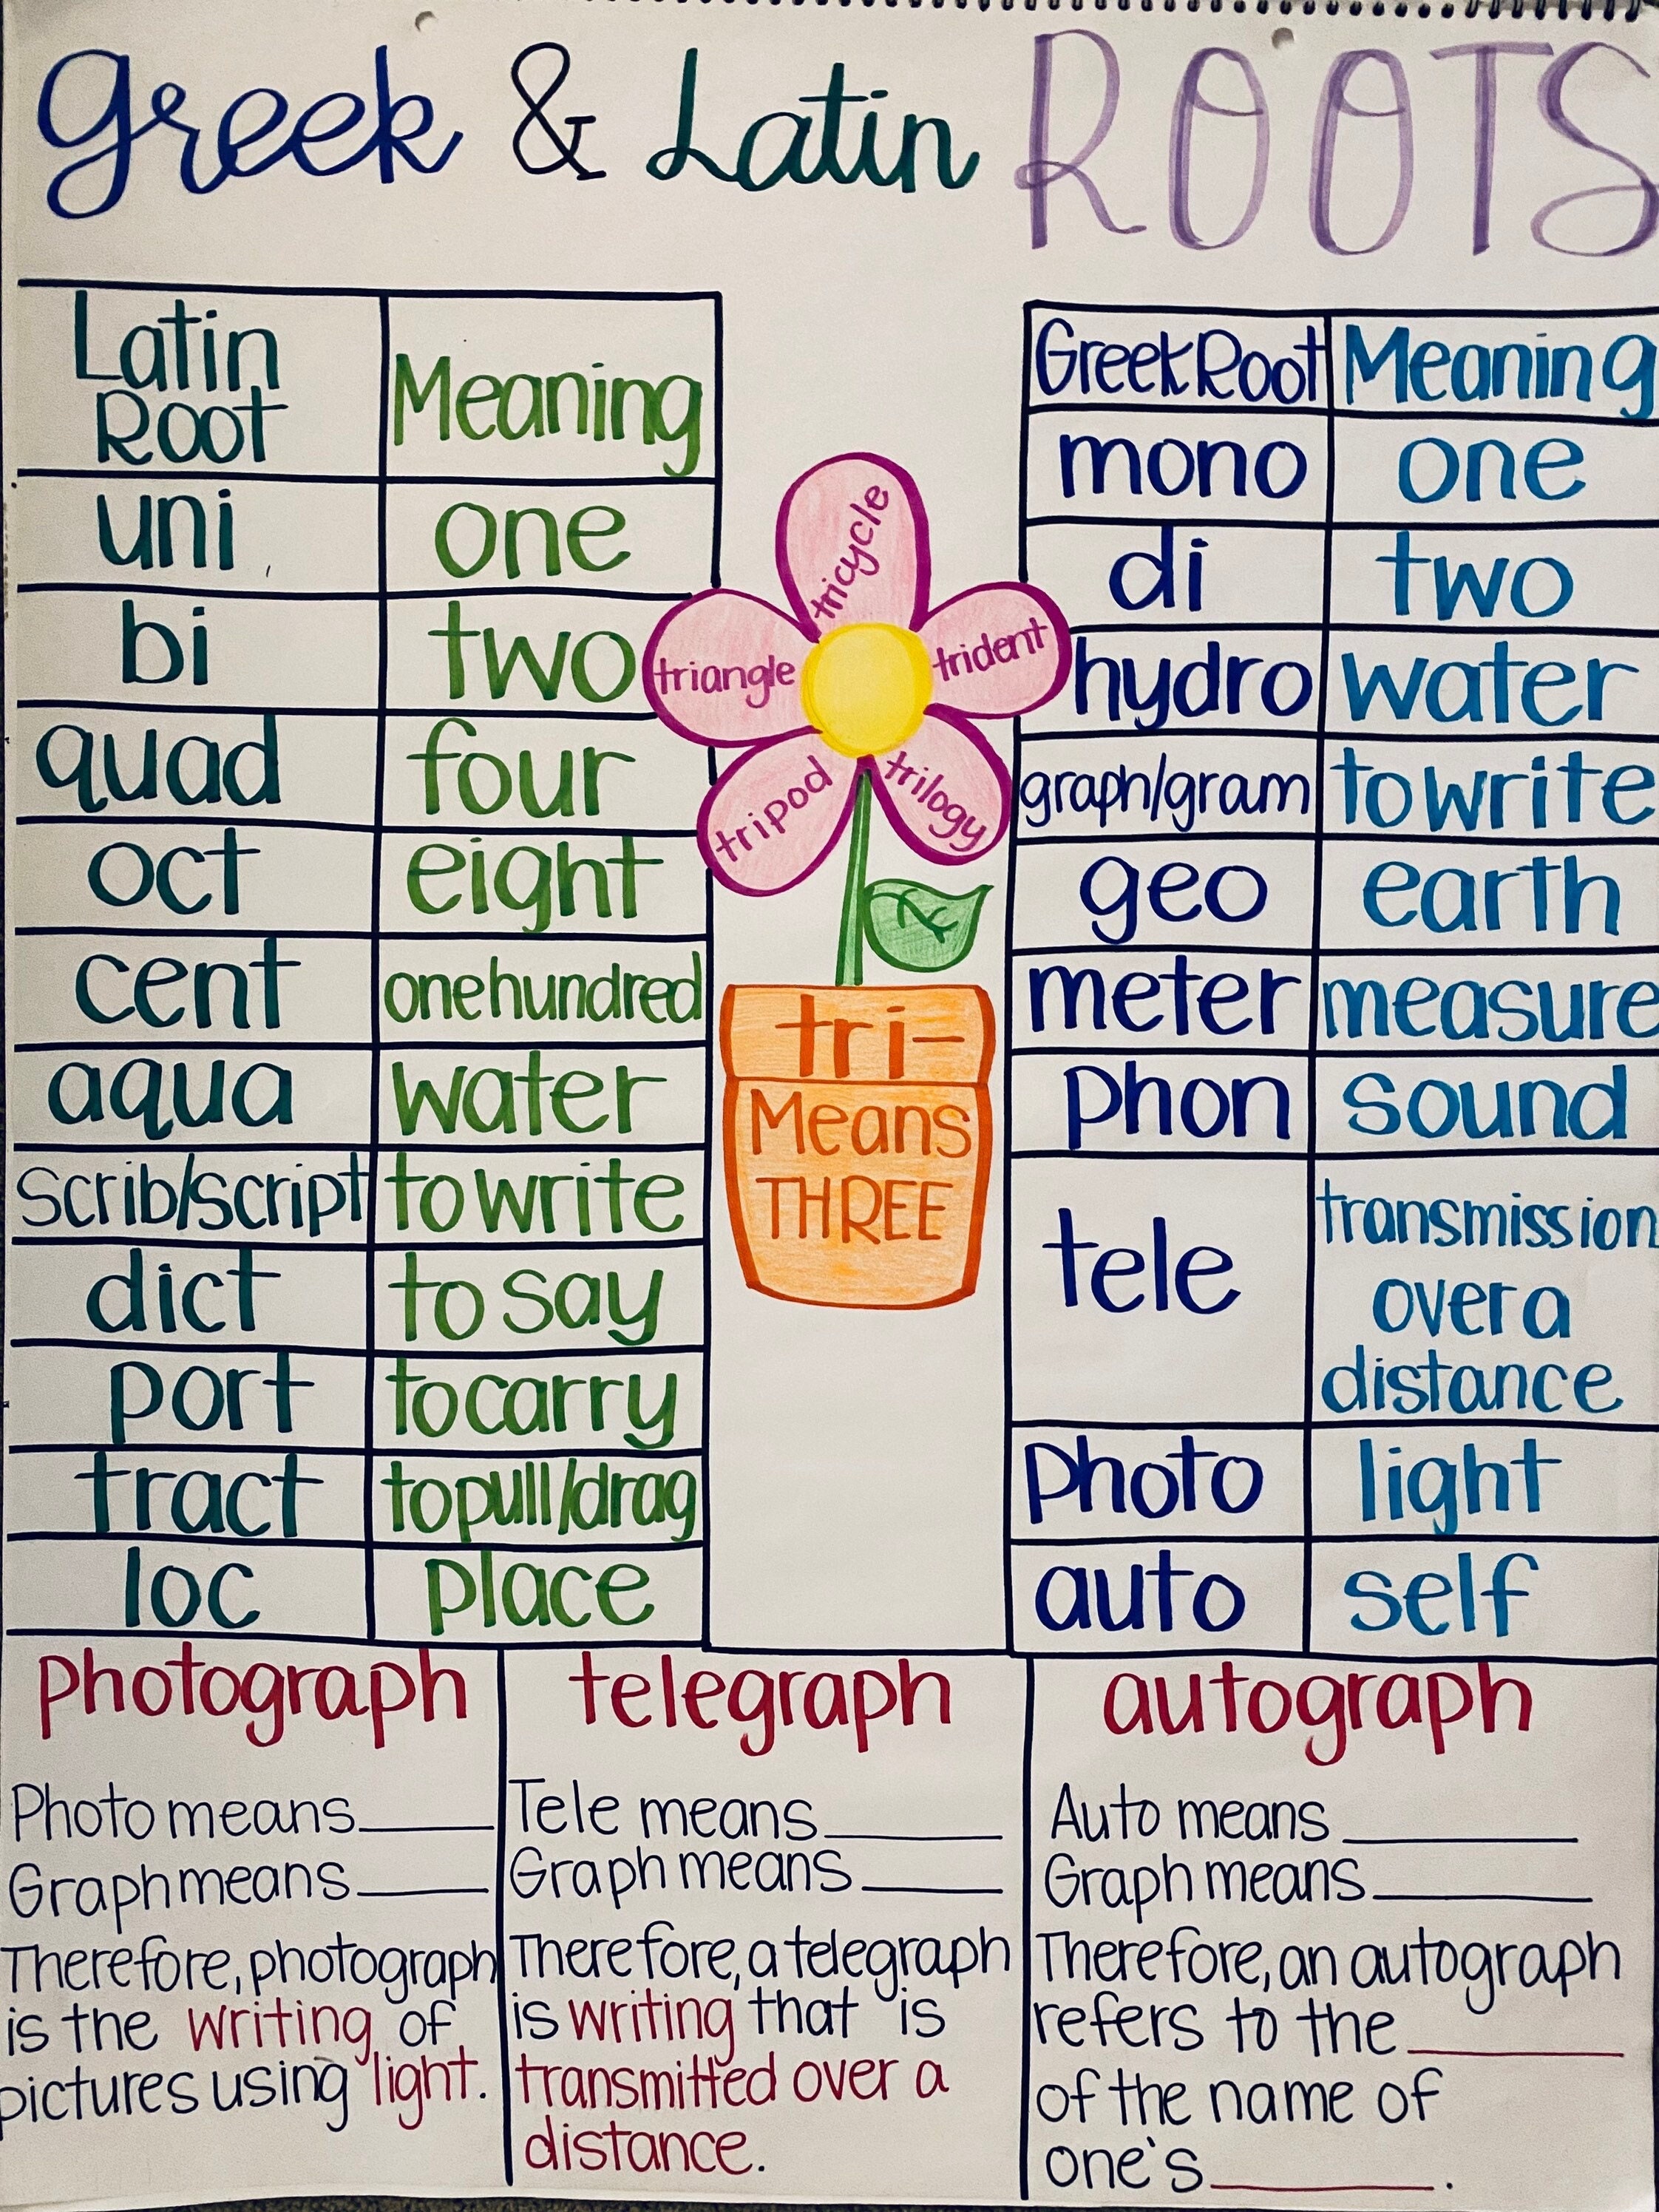 Greek & Latin ROOTS
Latin
Root
Meaning
uni one
bi two
quad four
oct eight
cent one hundred
aqua water
Scrib/script to write
dict to say
port to carry
tract to pull/drag
loc place
tricycle
triangle
trident
tripod
trilogy
tri-
Means
THREE
Greek Root Meaning
mono one
di two
hydro water
graph/gram to write
geo earth
meter measure
Phon sound
tele
transmission
over a
distance
Photo light
auto self
Photograph
Photo means
Graph means
Therefore, photograph
is the writing of
pictures using light.
telegraph
Tele means
Graph means
Therefore, a telegraph
is writing that is
transmitted over a
distance.
autograph
Auto means
Graph means
Therefore, an autograph
refers to the
of the name of
one's .